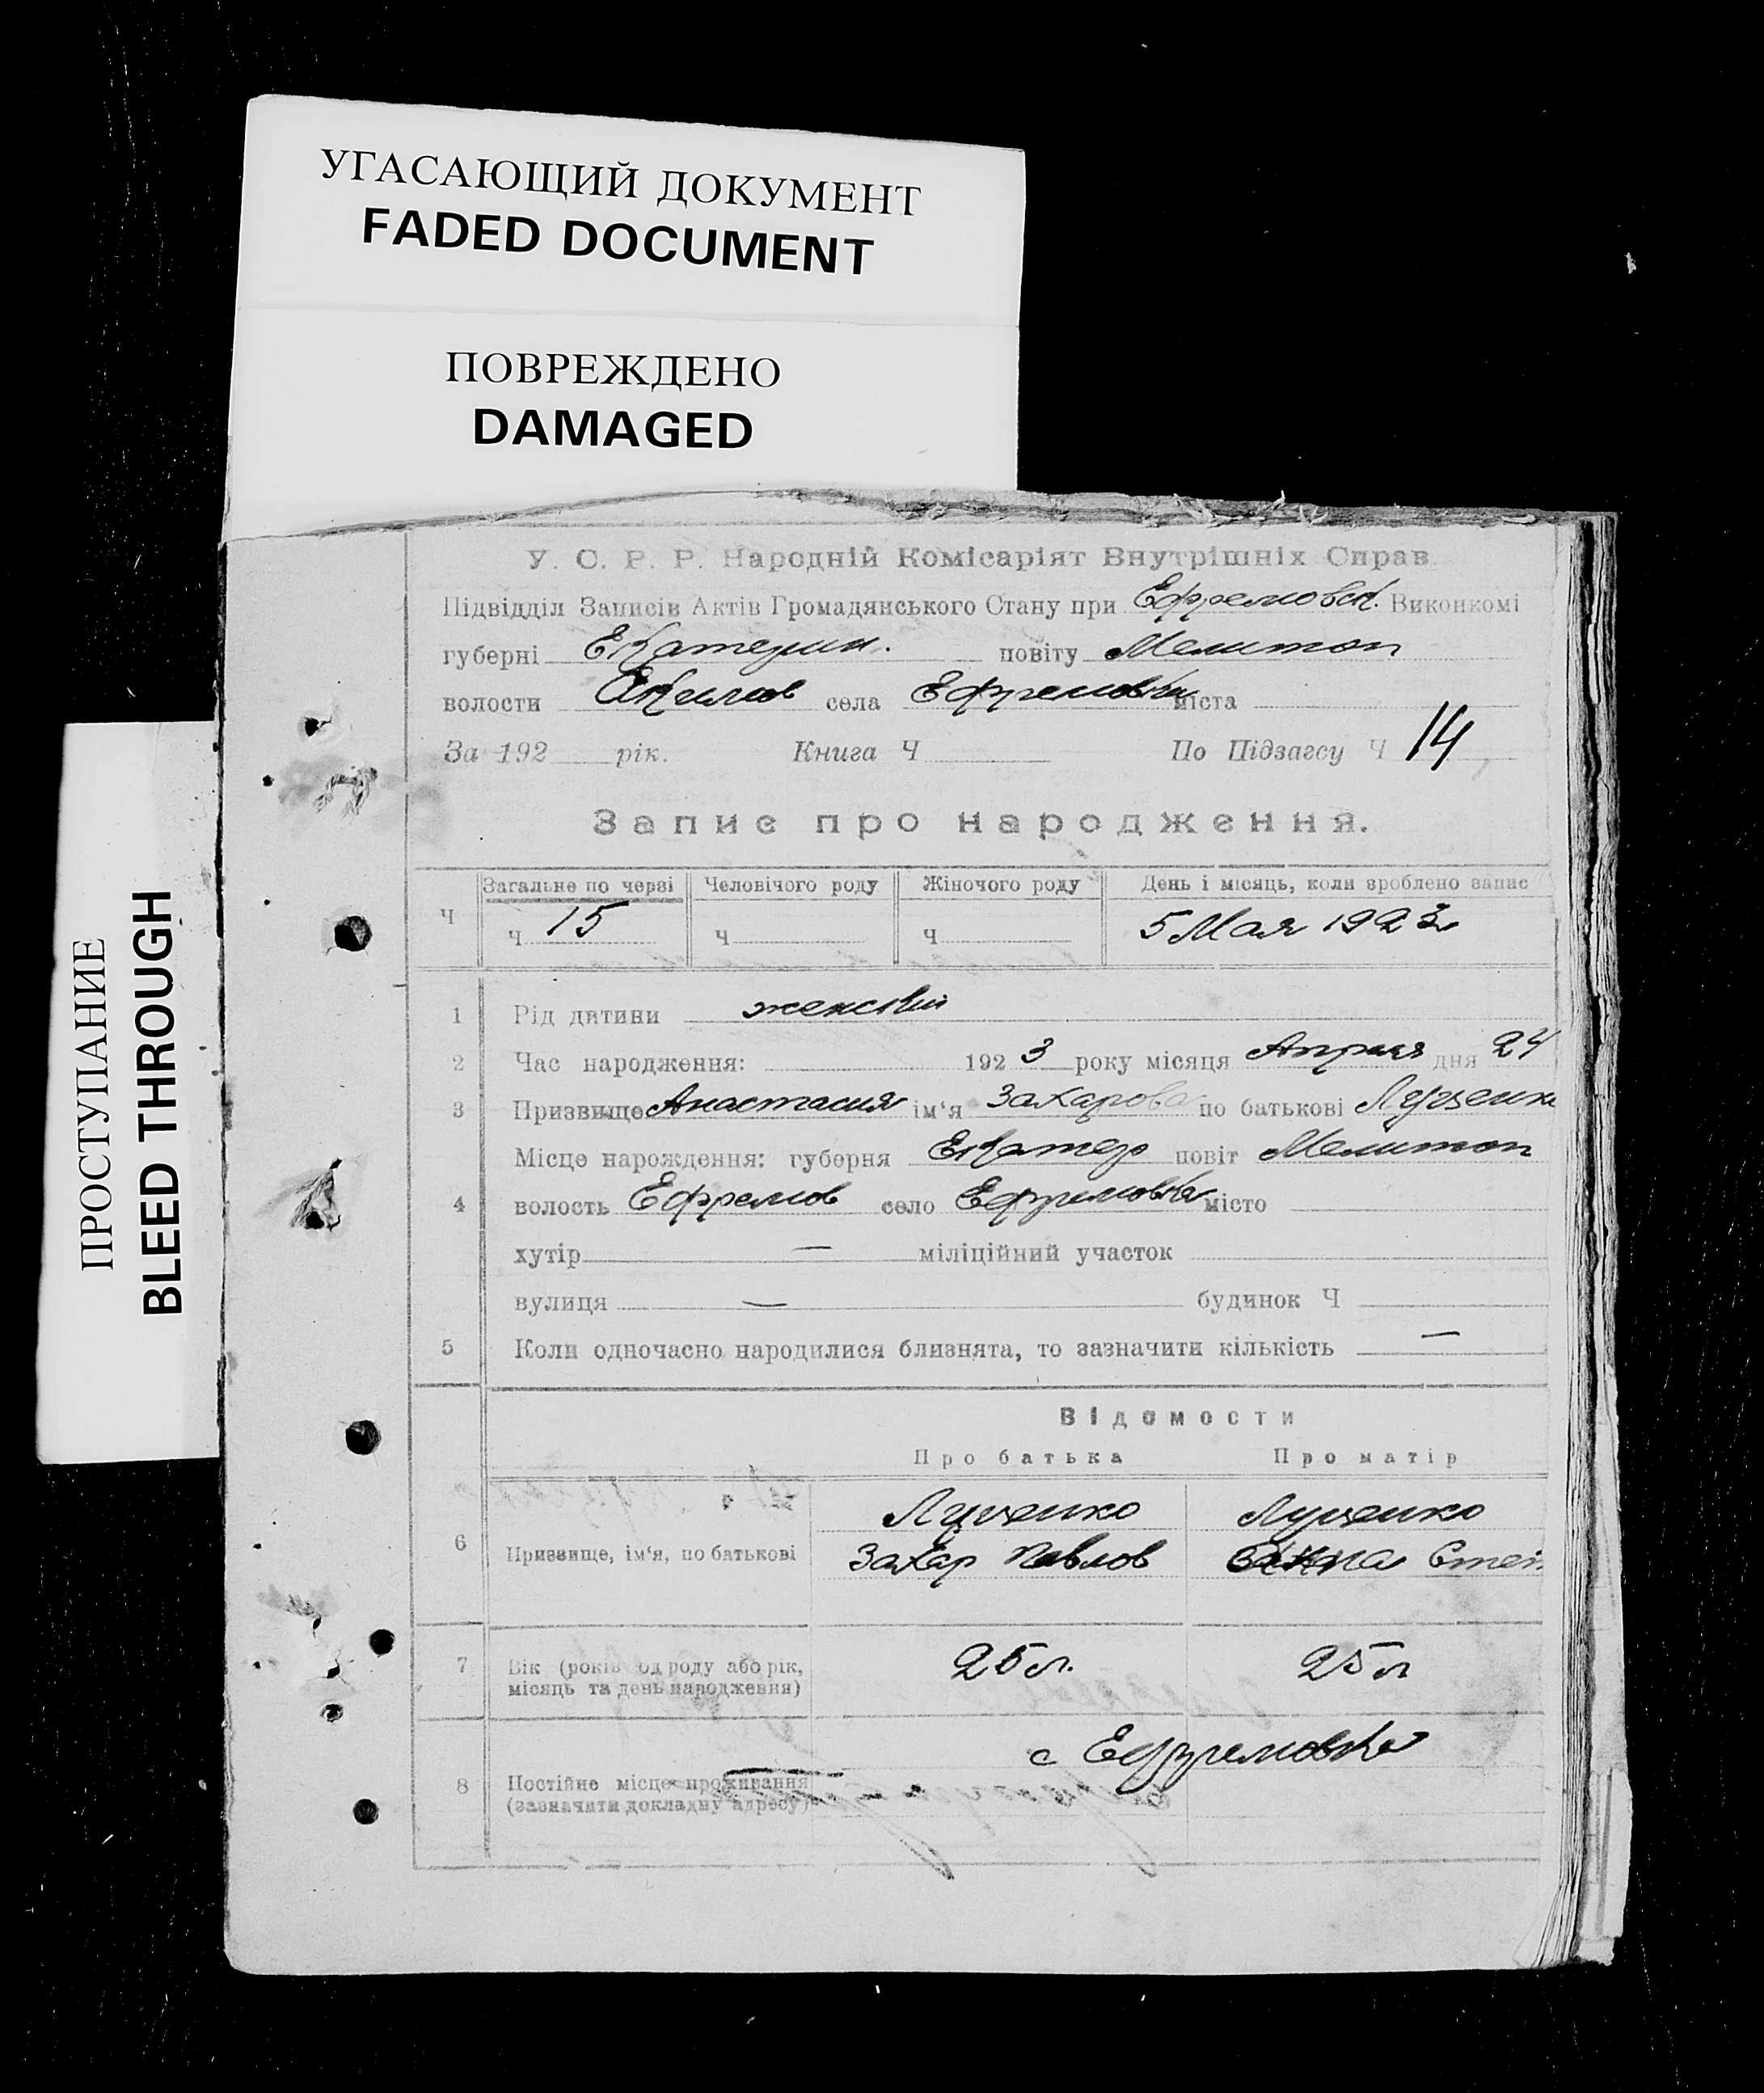 УГАСАЮЩИЙ ДОКУМЕНТ
FADED DOCUMENT
ПОВРЕЖДЕНО
DAMAGED
ПРОСТУПАНИЕ
BLEED THROUGH
У. С. Р. Р. Народній Комісаріят Внутрішніх Справ
Підвідділ Записів Актів Громадянського Стану при Ефремовск. Виконкомі
губерні Екатерин. повіту Мелитоп
волости Акимов села Ефремовка міста
За 192 рік. Книга Ч По Підзагсу Ч 14
Запис про народження.
Загальне по черзі Человічого роду Жіночого роду День і місяць, коли зроблено запис
Ч Ч 15 Ч Ч 5 Мая 1923
1 Рід дитини женский
2 Час народження: 1923 року місяця Апреля дня 24
3 Призвище Анастасия ім'я Захарова по батькові Луценко
Місце народження: губерня Екатер повіт Мелитоп
4 волость Ефремов село Ефремовка місто
хутір — міліційний участок
вулиця — будинок Ч
5 Коли одночасно народилися близнята, то зазначити кількість —
Відомости
Про батька Про матір
Луценко Луценко
6 Призвище, ім'я, по батькові Захар Павлов Анна Степ
7 Вік (років од роду або рік, 25 л. 25 л
місяць та день народження)
с Ефремовка
8 Постійне місце проживання
(зазначити докладну адресу)